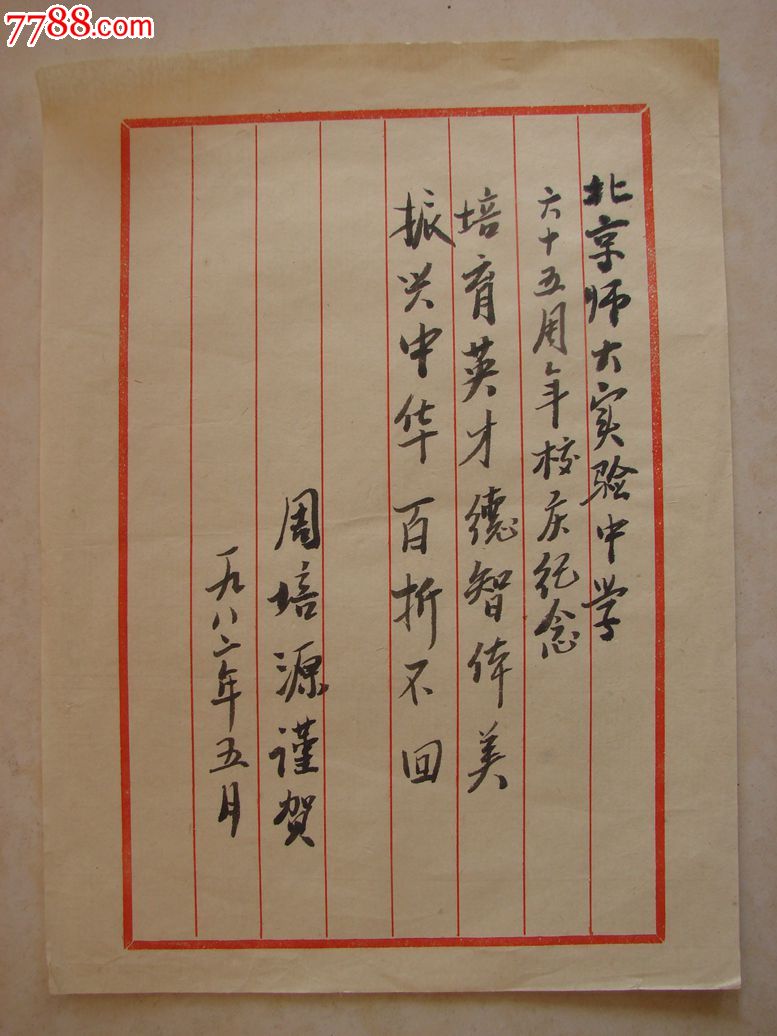 7788.com
北京师大实验中学
六十五周年校庆纪念
培育英才德智体美
振兴中华百折不回
周培源谨贺
一九八二年五月